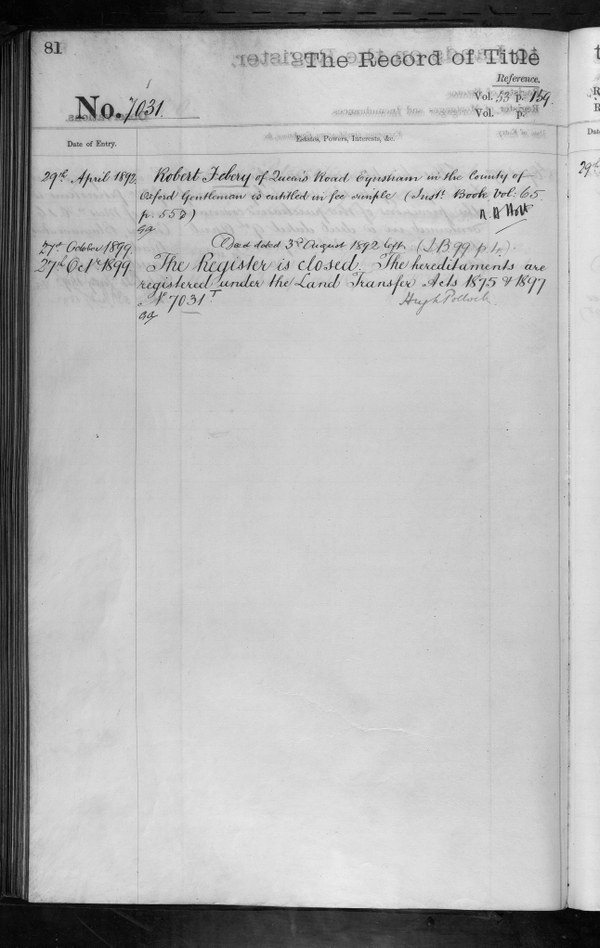 81
The Record of Title
Reference.
No. 7031.
Vol. 53 p. 159.
Vol. p.
Date of Entry.
Estates, Powers, Interests, &c.
29th April 1892. Robert Febery of Queen's Road Eynsham in the County of
Oxford Gentleman is entitled in fee simple (Inst. Book Vol: 65
p. 552)
27th October 1899. Deed dated 3rd August 1892 left (I.B 99 p 1.)
27th Octr 1899 The Register is closed. The hereditaments are
registered under the Land Transfer Acts 1875 & 1897
No 7031 T
Hugh Pollock